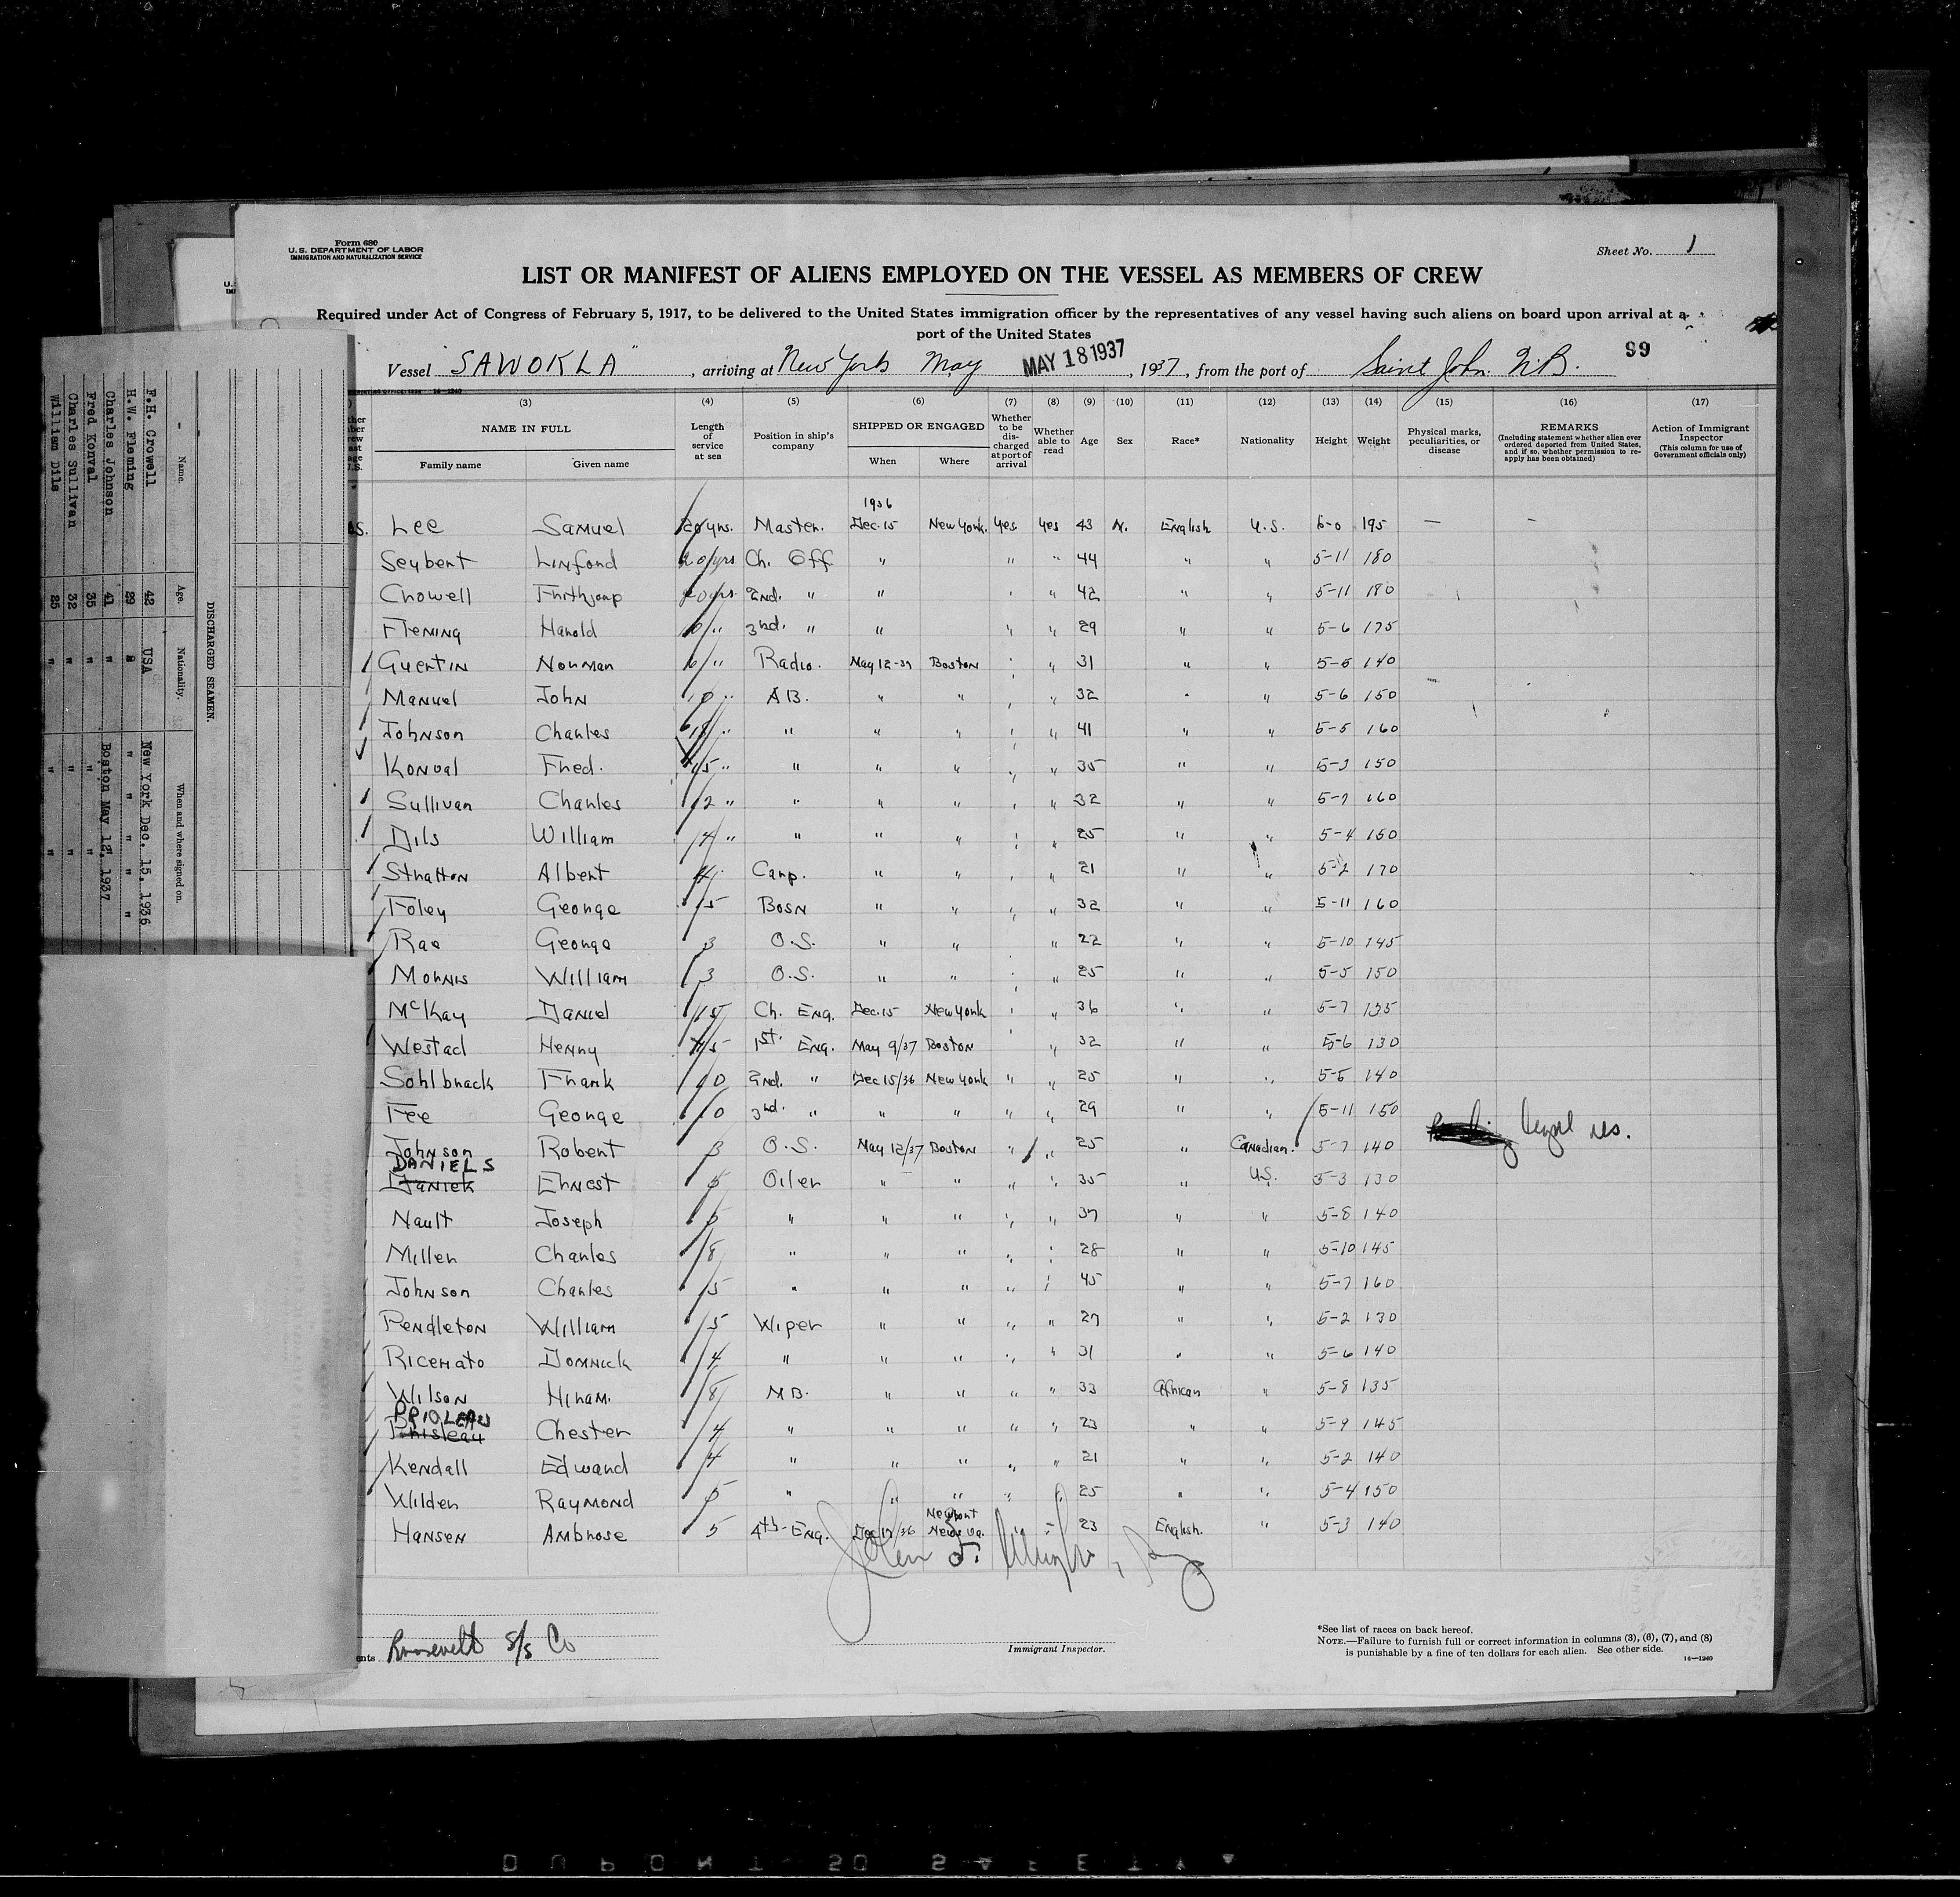 Form 680
U. S. DEPARTMENT OF LABOR
IMMIGRATION AND NATURALIZATION SERVICE
Sheet No. 1
LIST OR MANIFEST OF ALIENS EMPLOYED ON THE VESSEL AS MEMBERS OF CREW
Required under Act of Congress of February 5, 1917, to be delivered to the United States immigration officer by the representatives of any vessel having such aliens on board upon arrival at a
port of the United States
99
Vessel "SAWOKLA", arriving at New York May MAY 18 1937, 1937, from the port of Saint John N.B.
(3) (4) (5) (6) (7) (8) (9) (10) (11) (12) (13) (14) (15) (16) (17)
NAME IN FULL Family name Given name
Length of service at sea
Position in ship's company
SHIPPED OR ENGAGED When Where
Whether to be discharged at port of arrival
Whether able to read
Age Sex Race* Nationality Height Weight
Physical marks, peculiarities, or disease
REMARKS (Including statement whether alien ever ordered deported from United States, and if so, whether permission to reapply has been obtained)
Action of Immigrant Inspector (This column for use of Government officials only)
1936
Lee Samuel 20 yrs. Master. Dec. 15 New York. Yes Yes 43 M. English U.S. 6-0 195 —
Seybert Linford 20 yrs Ch. Off " " " 44 " " 5-11 180
Crowell 20 yrs. 2nd. " " " " 42 " " 5-11 180
Fleming Harold 10 " 3rd. " " " " 29 " " 5-6 175
Guertin Norman " Radio. May 12-37 Boston " " 31 " " 140
Manuel John 10 " AB. " " " " 32 " " 5-6 150
Johnson Charles 18 " " " " " " 41 " " 5-5 160
Konval Fred. 15 " " " " " " 35 " " 150
Sullivan Charles 12 " " " " " " 32 " " 160
Dils William " " " " " " 25 " " 5-4 150
Stratton Albert 4 Carp. " " " " 21 " " 5-2 170
Foley George 15 Bosn " " " " 32 " " 5-11 160
Rae George 3 O.S. " " " 22 " " 5-10 145
Morris William 3 O.S. " " " " 25 " " 5-5 150
McKay Daniel 15 Ch. Eng. Dec. 15 New York " " 36 " " 5-7 135
Westad Henry 15 1st. Eng. May 9/37 Boston " 32 " " 5-6 130
Sohlbrack Frank 10 2nd. " Dec 15/36 New York " " 25 " " 140
Fee George 10 3rd. " " " " " 29 " " 5-11 150
Johnson Robert 3 O.S. May 12/37 Boston " " 25 " Canadian. 5-7 140 legal res.
DANIELS
Ernest 5 Oiler " " " " 35 " U.S. 5-3 130
Nault Joseph 5 " " " " " 37 " " 5-8 140
Miller Charles 8 " " " " " 28 " " 5-10 145
Johnson Charles 5 " " " " " 45 " " 5-7 160
Pendleton William 5 Wiper " " " " 27 " " 5-2 130
Ricerato Domnick 4 " " " " " 31 " " 5-6 140
Wilson Hiram. 8 M B. " " " " 33 African " 5-8 135
PRIOLEAU
Chester 4 " " " " " 23 " " 5-9 145
Kendall Edward 4 " " " " " 21 " " 5-2 140
Wilder Raymond 5 " " " " " 25 " " 5-4 150
Hansen Ambrose 5 4th Eng. Dec 17/36 Newport News Va. " " 23 English. " 5-3 140
Roosevelt S/S Co
Immigrant Inspector.
*See list of races on back hereof.
NOTE.—Failure to furnish full or correct information in columns (3), (6), (7), and (8)
is punishable by a fine of ten dollars for each alien. See other side.
14—1240
DISCHARGED SEAMEN.
Name. Age. Nationality. When and where signed on.
F.H. Crowell 42 USA New York Dec. 15, 1936
H.W. Fleming 29 " " " " "
Charles Johnson 41 " Boston May 12, 1937
Fred Konval 35 " " "
Charles Sullivan 32 " " "
William Dils 25 " " "
DUPONT SO SAFETY